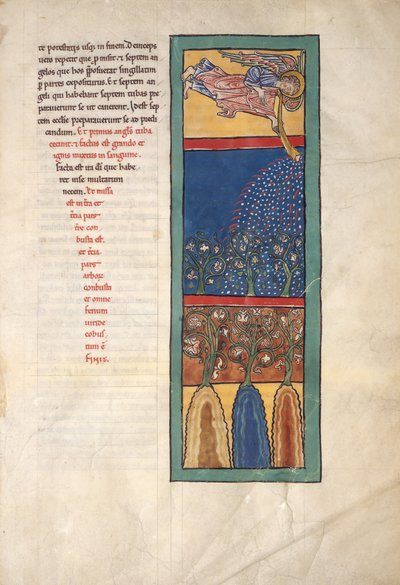 te potestatis usq; in finem. Deinceps
vero repetit que p̄misit. & septem an
gelos que hos p̄
p partes expositurus. Et septem an
geli qui habebant septem tubas pre
paraverunt se ut canerent. Id est sep
tem ecclie preparaverunt se ad predi
candum. Et primus angls tuba
cecinit. & factus est grando et
ignis mixtus in sanguine.
Facta est ira di que habe
ret in se multarum
necem. Et missa
est in tra et
tcia pars
tre con
busta est.
et tcia
pars
arborū
conbusta
et omne
fenum
viride
cobus
tum ē
Finis.